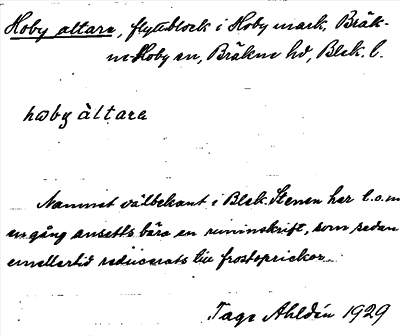 Hoby altare, flyttblock i Hoby mark, Bräk-
ne-Hoby sn, Bräkne hd, Blek. l.
hωby àltara
Namnet välbekant i Blek. Stenen har t.o.m
en gång ansetts bära en runinskrift, som sedan
emellertid reducerats till frostsprickor.
Tage Ahldén 1929